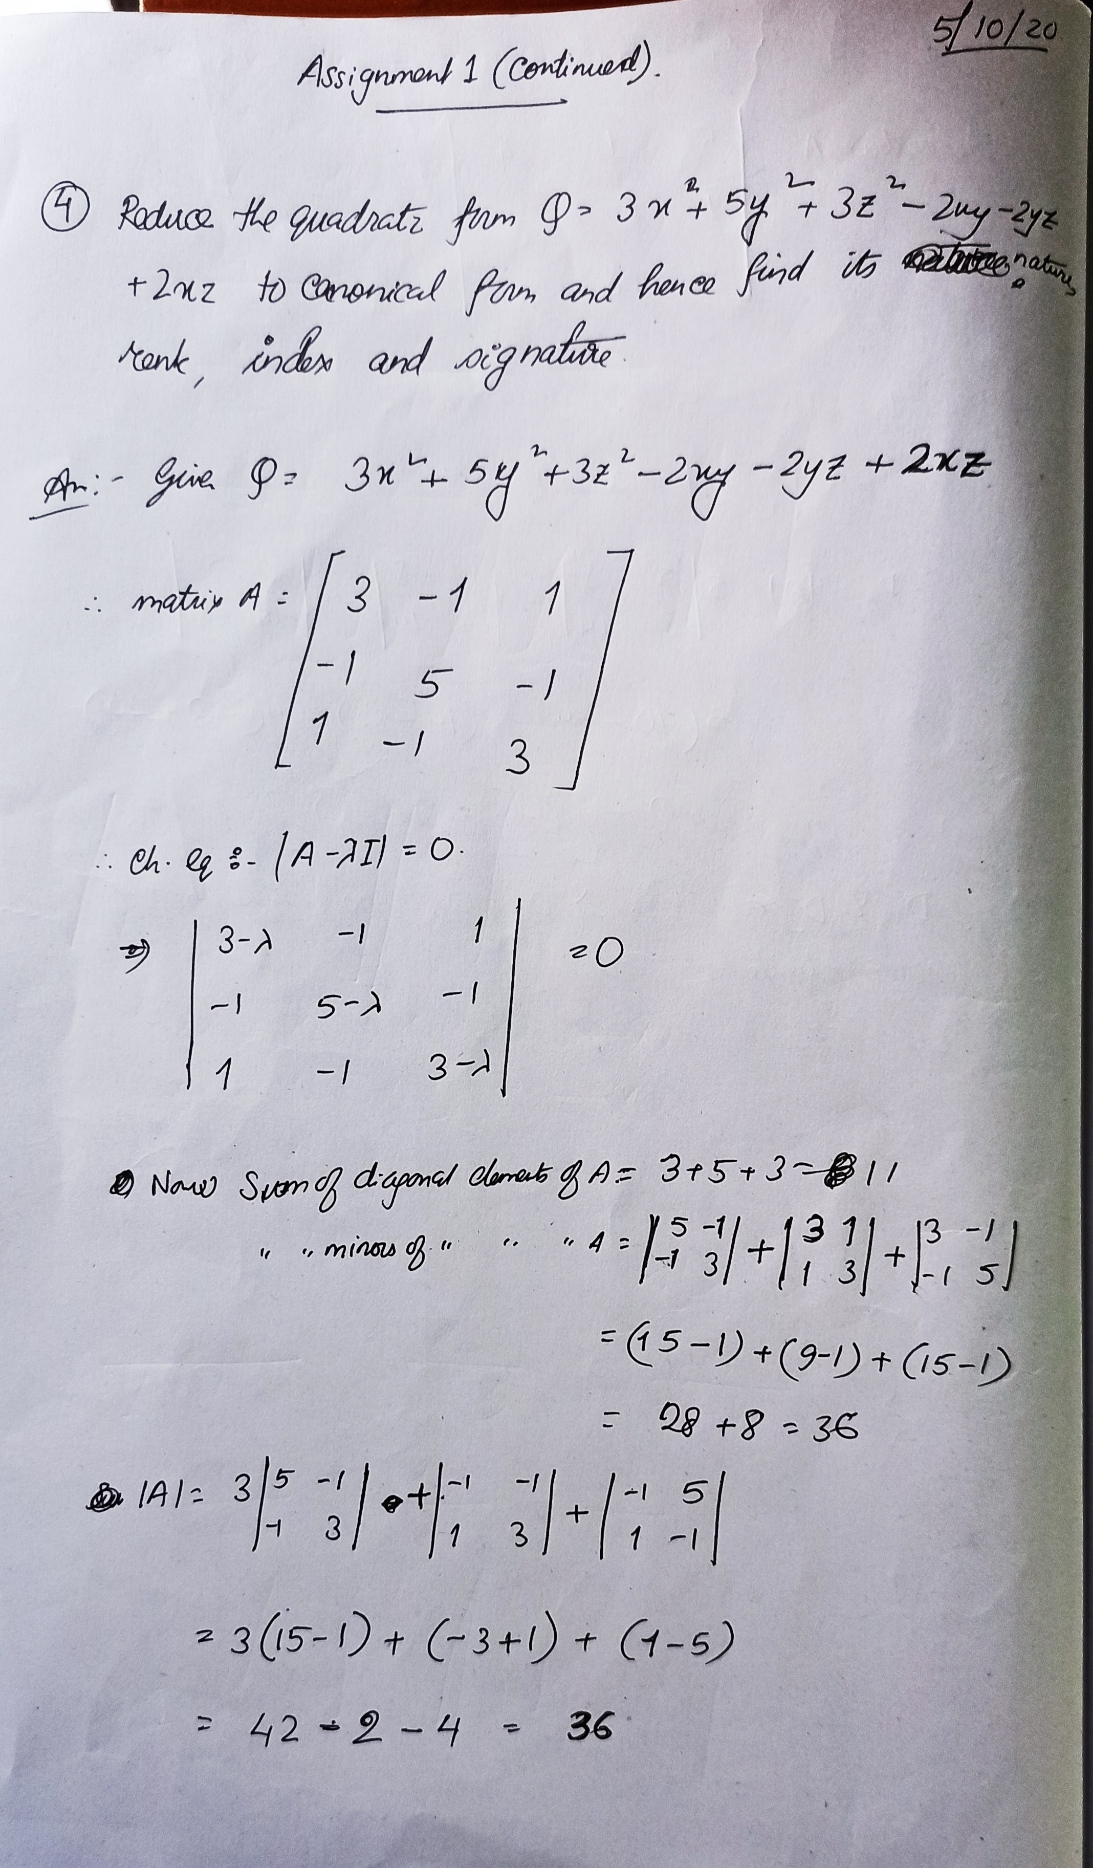 5/10/20
Assignment 1 (Continued).
④ Reduce the quadratic form Q = 3x² + 5y² + 3z² - 2xy - 2yz
+ 2xz to canonical form and hence find its nature,
rank, index and signature.
An:- Given Q = 3x² + 5y² + 3z² - 2xy - 2yz + 2xz
∴ matrix A = [ 3 -1 1
-1 5 -1
1 -1 3 ]
∴ Ch. eq :- |A - λI| = 0.
⇒ | 3-λ -1 1 | = 0
| -1 5-λ -1 |
| 1 -1 3-λ |
Now Sum of diagonal elements of A = 3 + 5 + 3 = 11
" " minors of " " " A = | 5 -1 | + | 3 1 | + | 3 -1 |
| -1 3 | | 1 3 | | -1 5 |
= (15 - 1) + (9-1) + (15-1)
= 28 + 8 = 36
|A| = 3 | 5 -1 | + | -1 -1 | + | -1 5 |
| -1 3 | | 1 3 | | 1 -1 |
= 3(15-1) + (-3+1) + (1-5)
= 42 - 2 - 4 = 36